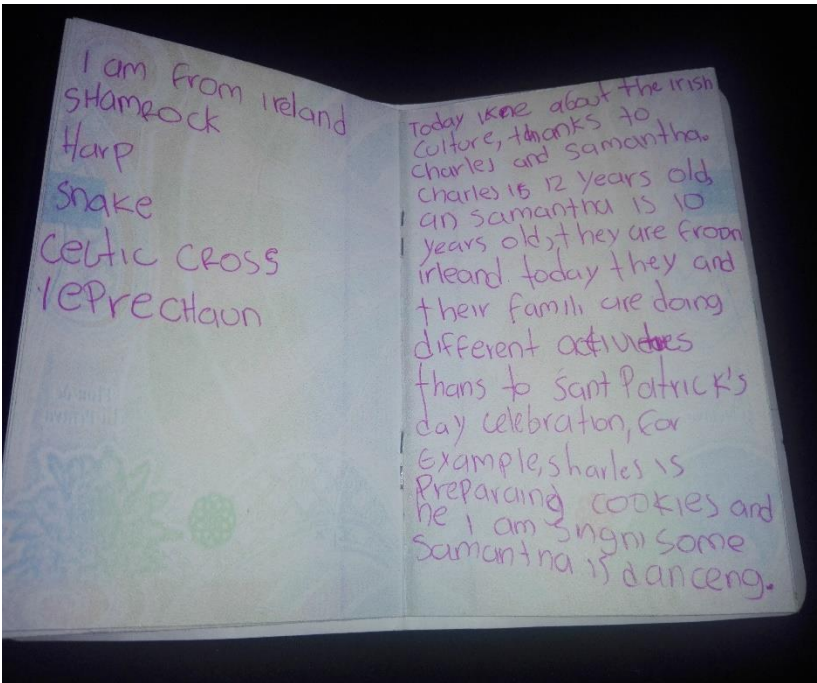 I am from ireland
SHAMROCK
Harp
snake
CELTIC CROSS
lEPrecHaun
Today about the irish
culture, thanks to
charles and samantha.
charles is 12 years old,
an samantha is 10
years old, they are from
irleand. today they and
their famili are doing
different activities
thans to Sant Patrick's
day celebration, for
Example, sharles is
Preparaing cookies and
he I am some
Samantha is danceng.